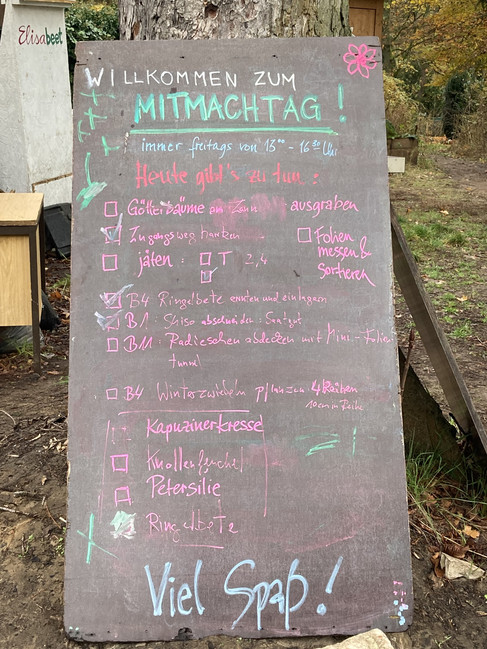 Elisabeet
WILLKOMMEN ZUM
MITMACHTAG!
immer freitags von 13⁰⁰ - 16³⁰ Uhr
Heute gibt's zu tun:
Götterbäume am Zaun ausgraben
Zugangsweg harken
Folien
messen &
sortieren
jäten: T 2,4
B4 Ringelbete ernten und einlagern
B1 Shiso abschneiden: Saatgut
B11: Radieschen abdecken mit Mini-Folien
tunnel
B4 Winterzwiebeln pflanzen: 4 Reihen
10cm in Reihe
Kapuzinerkresse
Knollenfenchel
Petersilie
Ringelbete
Viel Spaß!